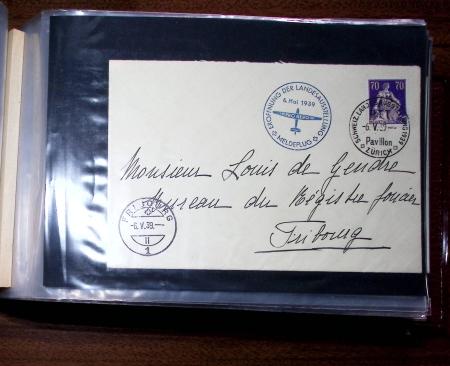 ERÖFFNUNG DER LANDESAUSSTELLUNG
6. Mai 1939
MELDEFLUG
70 70
SCHWEIZ. LANDESAUSSTELLUNG 1939
-6.V.39.-
Pavillon
ZÜRICH
Monsieur Louis de Gendre
Bureau du Régistre foncier
Fribourg
FRIBOURG
-6.V.39.-
II
1